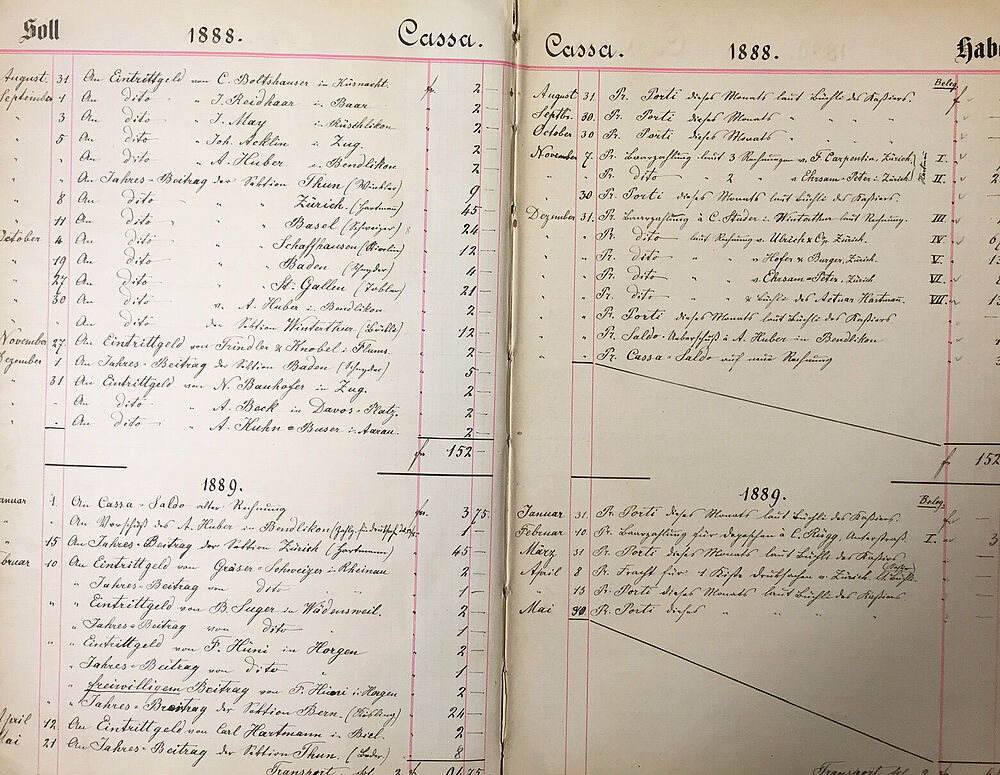 Soll 1888. Cassa.
August 31 An Eintrittgeld von C. Boltshauser in Küsnacht. fr. 2 —
September 1 An dito " J. Reidhaar i. Baar 2 —
" 3 An dito " J. May i. Rüschlikon 2 —
" 5 An dito " Joh. Acklin i. Zug. 2 —
" " An dito " A. Huber i. Bendlikon 2 —
" " An Jahres-Beitrag der Sektion Thun (Winkler) 9 —
" 8 An dito " " Zürich. (Hartmann) 45 —
" 11 An dito " " Basel (Schweizer) 24 —
October 4 An dito " " Schaffhausen 12 —
" 19 An dito " " Baden (Schnyder) 4 —
" 27 An dito " " St. Gallen 21 —
" 30 An dito v. A. Huber i. Bendlikon 2 —
" " An dito der Sektion Winterthur 12 —
November 27 An Eintrittgeld von Trindler & Knobel i. Flums. 2 —
Dezember 1 An Jahres-Beitrag der Sektion Baden (Schnyder) 5 —
" 31 An Eintrittgeld von N. Bauhofer in Zug. 2 —
" " An dito " A. Beck in Davos-Platz. 2 —
" " An dito " A. Kuhn=Buser i. Aarau. 2 —
fr 152 —
1889.
Januar 1. An Cassa-Saldo alter Rechnung fr. 3 75
" " An Vorschuß des A. Huber in Bendlikon 1 —
" 15 An Jahres-Beitrag der Sektion Zürich (Hartmann) 45 —
Februar 10 An Eintrittgeld von Gräser-Schweizer i. Rheinau 2 —
" " Jahres-Beitrag von dito 1 —
" " Eintrittgeld von B. Suger in Wädensweil. 2 —
" " Jahres-Beitrag von dito 1 —
" " Eintrittgeld von F. Hüni in Horgen 2 —
" Jahres-Beitrag von dito 1 —
" freiwilligem Beitrag von F. Hüni i. Horgen 2 —
" Jahres-Beitrag der Sektion Bern. 24 —
April 12 An Eintrittgeld von Carl Hartmann in Biel. 2 —
Mai 21 An Jahres-Beitrag der Sektion Thun. 8 —
Transport
Cassa. 1888. Habe
Beleg
August 31 Pr. Porti dieses Monats laut Büchli des Kaßiers.
Septbr. 30. Pr. Porti dieses Monats " " "
October 30 Pr. Porti dieses Monats " " "
November 7. Pr. Baarzahlung laut 3 Rechnungen v. F. Carpentier, Zürich I.
" " Pr. dito " 2 " v. Ehrsam-Peter i. Zürich II.
" 30 Pr. Porti dieses Monats laut Büchli des Kaßiers.
Dezember 31. Pr. Baarzahlung à C. Studer i. Winterthur laut Rechnung. III
" " Pr. dito laut Rechnung v. Ulrich & Co, Zürich. IV
" " Pr. dito " " v. Hofer & Burger, Zürich. V.
" " Pr. dito " " v. Ehrsam-Peter, Zürich VI.
" " Pr. dito " " & Büchli des Actuar Hartmann. VII.
" " Pr. Porti dieses Monats laut Büchli des Kaßiers
" " Pr. Saldo-Ueberschuß à A. Huber in Bendlikon
" " Pr. Cassa-Saldo auf neue Rechnung
fr 152
1889.
Beleg
Januar 31. Pr. Porti dieses Monats laut Büchli des Kaßiers.
Februar 10 Pr. Baarzahlung für Depeschen à C. Rügg. I.
März 31 Pr. Porti dieses Monats laut Büchli des Kaßiers
April 8 Pr. Fracht für 1 Kiste Drucksachen v. Zürich
" 13 Pr. Porti dieses Monats laut Büchli des Kaßiers
Mai 30 Pr. Porti dieses " "
Transport